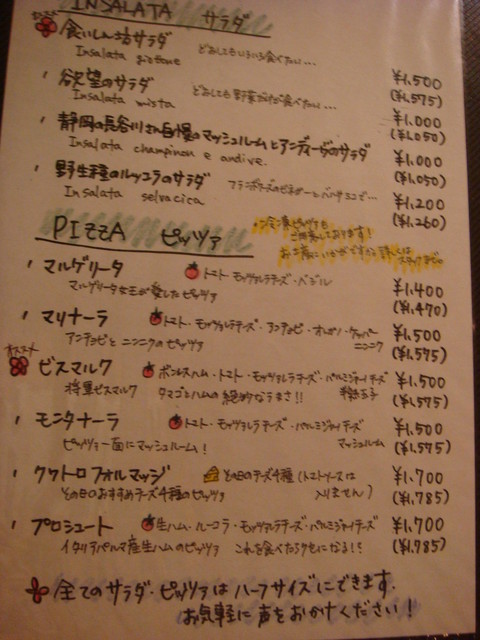 INSALATA サラダ
食いしん坊サラダ どおしてもいろいろ食べたい… ¥1,500
Insalata giotone (¥1,575)
欲望のサラダ どおしても野菜だけが食べたい… ¥1,000
Insalata mista (¥1,050)
静岡の長谷川さん自慢のマッシュルームとアンディーヴのサラダ ¥1,000
Insalata champinon e andive. (¥1,050)
野生種のルッコラのサラダ ¥1,200
Insalata selvacica (¥1,260)
PIZZA ピッツァ
マルゲリータ トマト・モッツァレラチーズ・バジル ¥1,400
マルゲリータ女王が愛したピッツァ (¥1,470)
マリナーラ トマト・モッツァレラチーズ・アンチョビ・オレガノ・ケッパー ¥1,500
アンチョビとニンニクのピッツァ ニンニク (¥1,575)
オススメ
ビスマルク ボンレスハム・トマト・モッツァレラチーズ・パルミジャーノチーズ ¥1,500
将軍ビスマルク タマゴとハムの絶妙なうまさ!! 半熟玉子 (¥1,575)
モンタナーラ トマト・モッツァレラチーズ・パルミジャーノチーズ ¥1,500
ピッツァ一面にマッシュルーム! マッシュルーム (¥1,575)
クワトロフォルマッジ その日のチーズ4種(トマトソースは ¥1,700
その日のおすすめチーズ4種のピッツァ 入りません) (¥1,785)
プロシュート 生ハム・ルーコラ・モッツァレラチーズ・パルミジャーノチーズ ¥1,700
イタリアパルマ産生ハムのピッツァ これを食べたらクセになる!! (¥1,785)
全てのサラダ・ピッツァはハーフサイズにできます。
お気軽に声をおかけください!